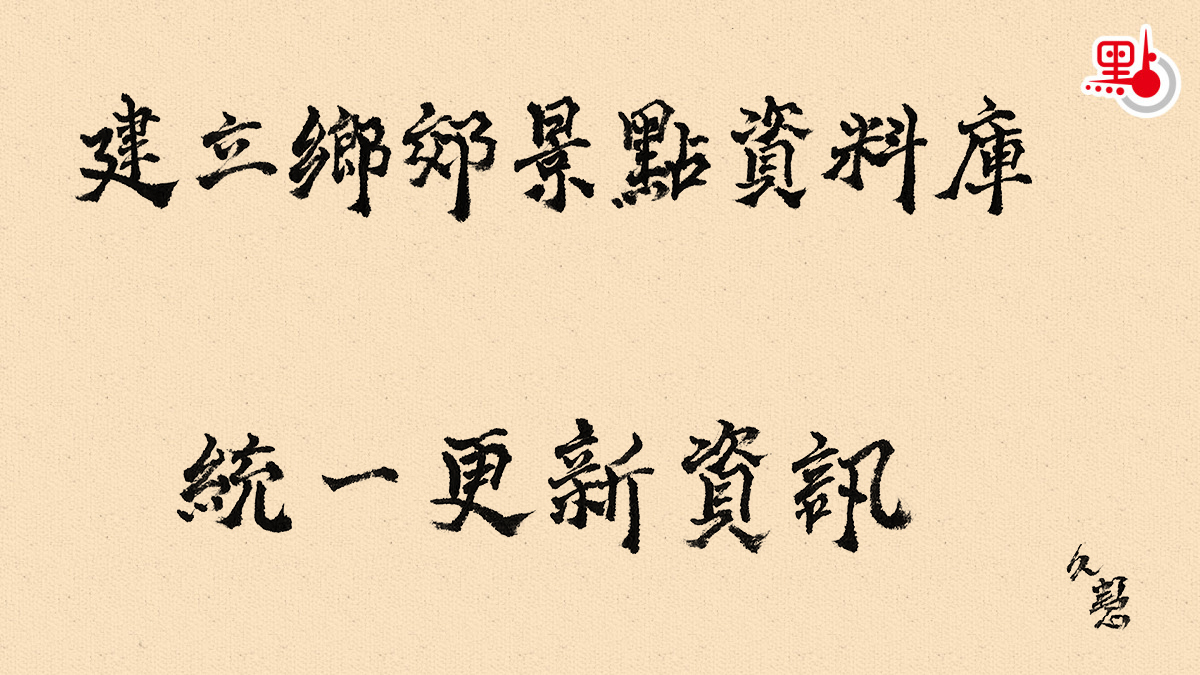 點
建立鄉郊景點資料庫
統一更新資訊
久慧